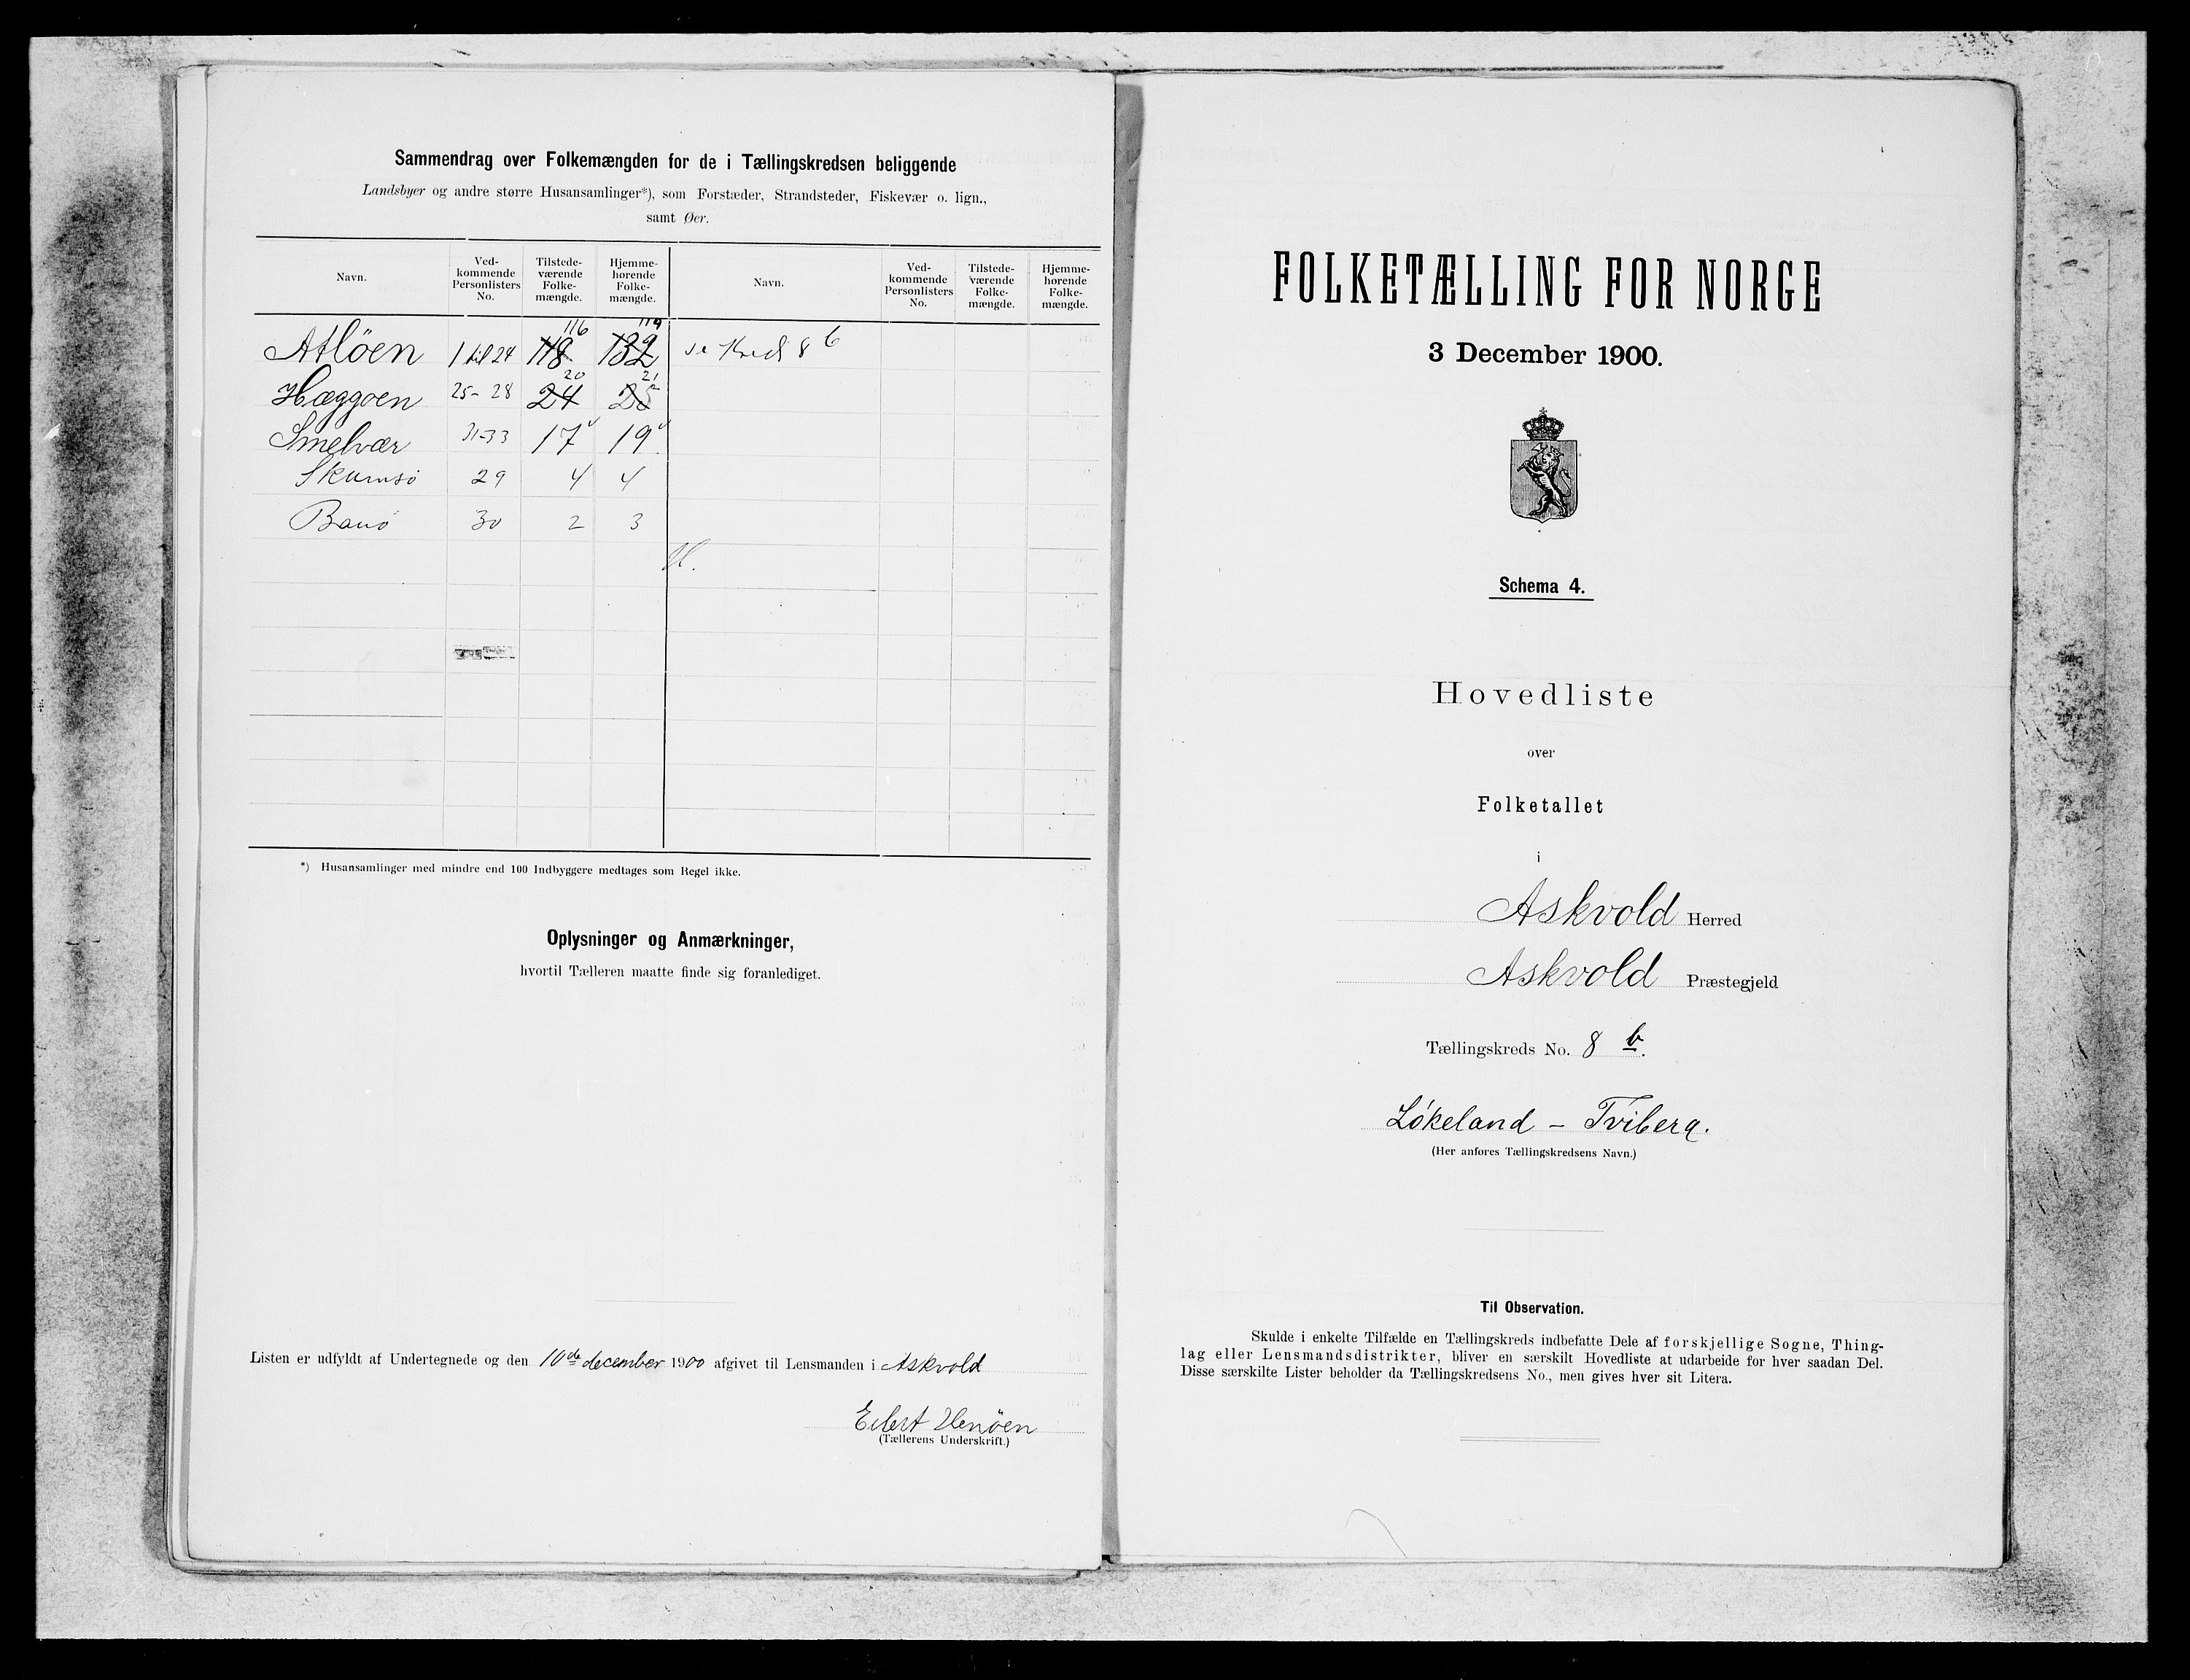 Sammendrag over Folkemængden for de i Tællingskredsen beliggende
Landsbyer og andre større Husansamlinger*), som Forstæder, Strandsteder, Fiskevær o. lign.,
samt Øer.
Navn. Ved-kommende Personlisters No. Tilstede-værende Folke-mængde. Hjemme-hørende Folke-mængde. Navn. Ved-kommende Personlisters No. Tilstede-værende Folke-mængde. Hjemme-hørende Folke-mængde.
116 119
Atlöen 1 til 24 118 132 se Kreds 8 b
20 21
Hæggoen 25- 28 24 25
Smelvær 31-33 17 19
Skumsö 29 4 4
Banö 30 2 3
*) Husansamlinger med mindre end 100 Indbyggere medtages som Regel ikke.
Oplysninger og Anmærkninger,
hvortil Tælleren maatte finde sig foranlediget.
Listen er udfyldt af Undertegnede og den 10de december 1900 afgivet til Lensmanden i Askvold
Eilert Henöen
(Tællerens Underskrift.)
FOLKETÆLLING FOR NORGE
3 December 1900.
Schema 4.
Hovedliste
over
Folketallet
i
Askvold Herred
Askvold Præstegjeld
Tællingskreds No. 8 b.
Lökeland - Tviberg.
(Her anføres Tællingskredsens Navn.)
Til Observation.
Skulde i enkelte Tilfælde en Tællingskreds indbefatte Dele af forskjellige Sogne, Thing-
lag eller Lensmandsdistrikter, bliver en særskilt Hovedliste at udarbeide for hver saadan Del.
Disse særskilte Lister beholder da Tællingskredsens No., men gives hver sit Litera.